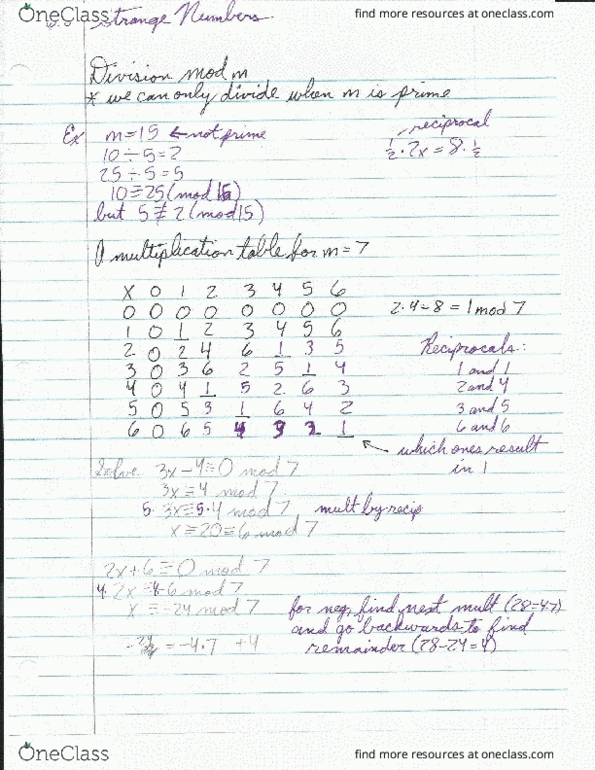 OneClass
find more resources at oneclass.com
Strange Numbers
Division mod m
* we can only divide when m is prime
Ex m=15 ← not prime
reciprocal
½·2x = 8·½
10÷5=2
25÷5=5
10≡25 (mod 15)
but 5≢2 (mod 15)
A multiplication table for m=7
X 0 1 2 3 4 5 6
0 0 0 0 0 0 0 0
1 0 1 2 3 4 5 6
2 0 2 4 6 1 3 5
3 0 3 6 2 5 1 4
4 0 4 1 5 2 6 3
5 0 5 3 1 6 4 2
6 0 6 5 4 3 2 1
2·4=8 = 1 mod 7
Reciprocals:
1 and 1
2 and 4
3 and 5
6 and 6
which ones result
in 1
Solve 3x-4≡0 mod 7
3x≡4 mod 7
5·3x≡5·4 mod 7, mult by recip
x≡20≡6 mod 7
2x+6≡0 mod 7
4·2x≡4·-6 mod 7
x≡-24 mod 7
for neg, find next mult (28=4·7)
and go backwards to find
remainder (28-24=4)
= -4·7 +4
OneClass
find more resources at oneclass.com